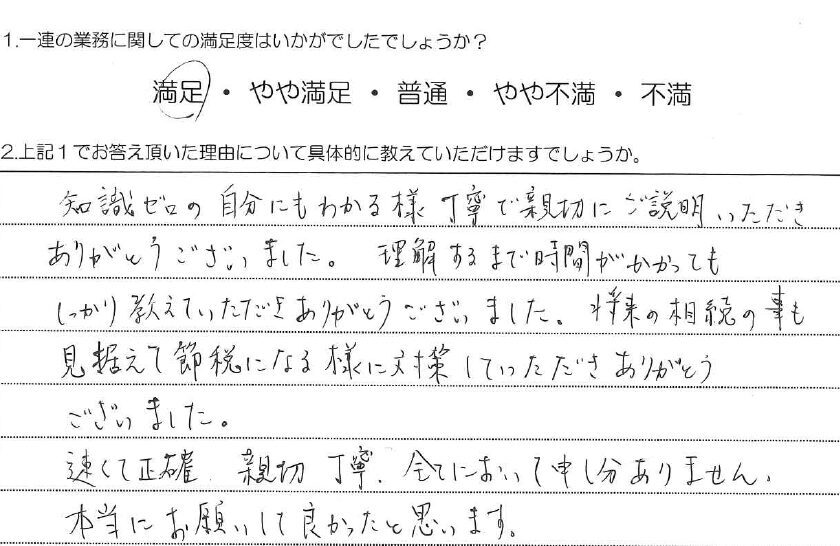 1.一連の業務に関しての満足度はいかがでしたでしょうか？
満足・やや満足・普通・やや不満・不満
2.上記１でお答え頂いた理由について具体的に教えていただけますでしょうか。
知識ゼロの自分にもわかる様丁寧で親切にご説明いただき
ありがとうございました。理解するまで時間がかかっても
しっかり教えていただきありがとうございました。将来の相続の事も
見据えて節税になる様に対策していただきありがとう
ございました。
速くて正確、親切、丁寧、全てにおいて申し分ありません。
本当にお願いして良かったと思います。